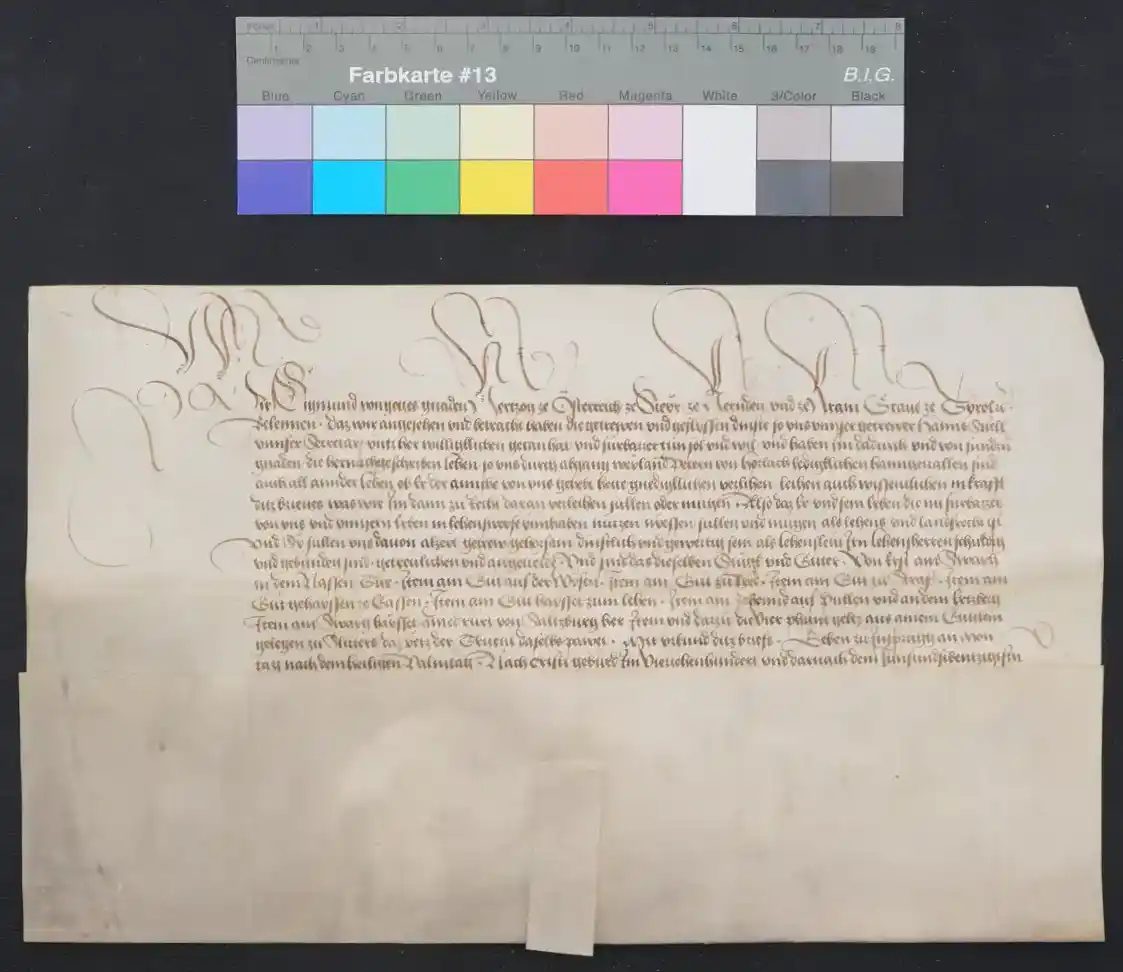 Inches 1 2 3 4 5 6 7 8
1 2 3 4 5 6 7 8 9 10 11 12 13 14 15 16 17 18 19
Centimetres
Farbkarte #13 B.I.G.
Blue Cyan Green Yellow Red Magenta White 3/Color Black
Wir Sigmund von gotes gnaden Hertzog ze Österreich ze Steyr ze Kernden und ze Krain Grave ze Tyrol
Bekennen daz wir angesehen und betracht haben die getrewen und geflyssen dinste so uns unnser getrewer Hanns
unnser Secretari untzher willigklichen getan hat und furbaser tun sol und wil und haben im dadurch und von sundern
gnaden die hernachgeschriben lehen so uns durch abgang weyland von ledigklichen haimgevallen sind
auch all annder lehen ob Er der ainiche von uns gehebt hette gnedigklichen verlihen leihen auch wissentlichen in krafft
ditz brieves was wir Im dann zu Recht daran verleihen sullen oder mugen Also daz Er und sein Erben die nu furbazzer
von uns und unnsern Erben in lehensweise innhaben nutzen niessen sullen und mugen als lehens und landsrecht ist
und Sy sullen uns davon alzeit getrew gehorsam dinstlich und gewerttig sein als lehensleut Irn lehensherren schuldig
und gebunden sind getreulichen und angeverde Und sind das dieselben Stugk und Guter Von erst ain
in dem Nassen Item ain Gut auf der Wysen Item ain Gut Item ain Gut Item ain
Gut gehayssen Item ain Gut haysset zum lehen Item ain auf und an dem
Item ain haysset von Saltzburg her Item und dartzu die Vier phunt geltz aus ainem
gelegen zu daz daselbs pawet Mit urkund ditz briefs Geben zu Insprugg an Mon
tag nach dem heiligen Palmtag Nach Cristi geburd Im Viertzehenhundert und darnach dem funfundsibentzigisten